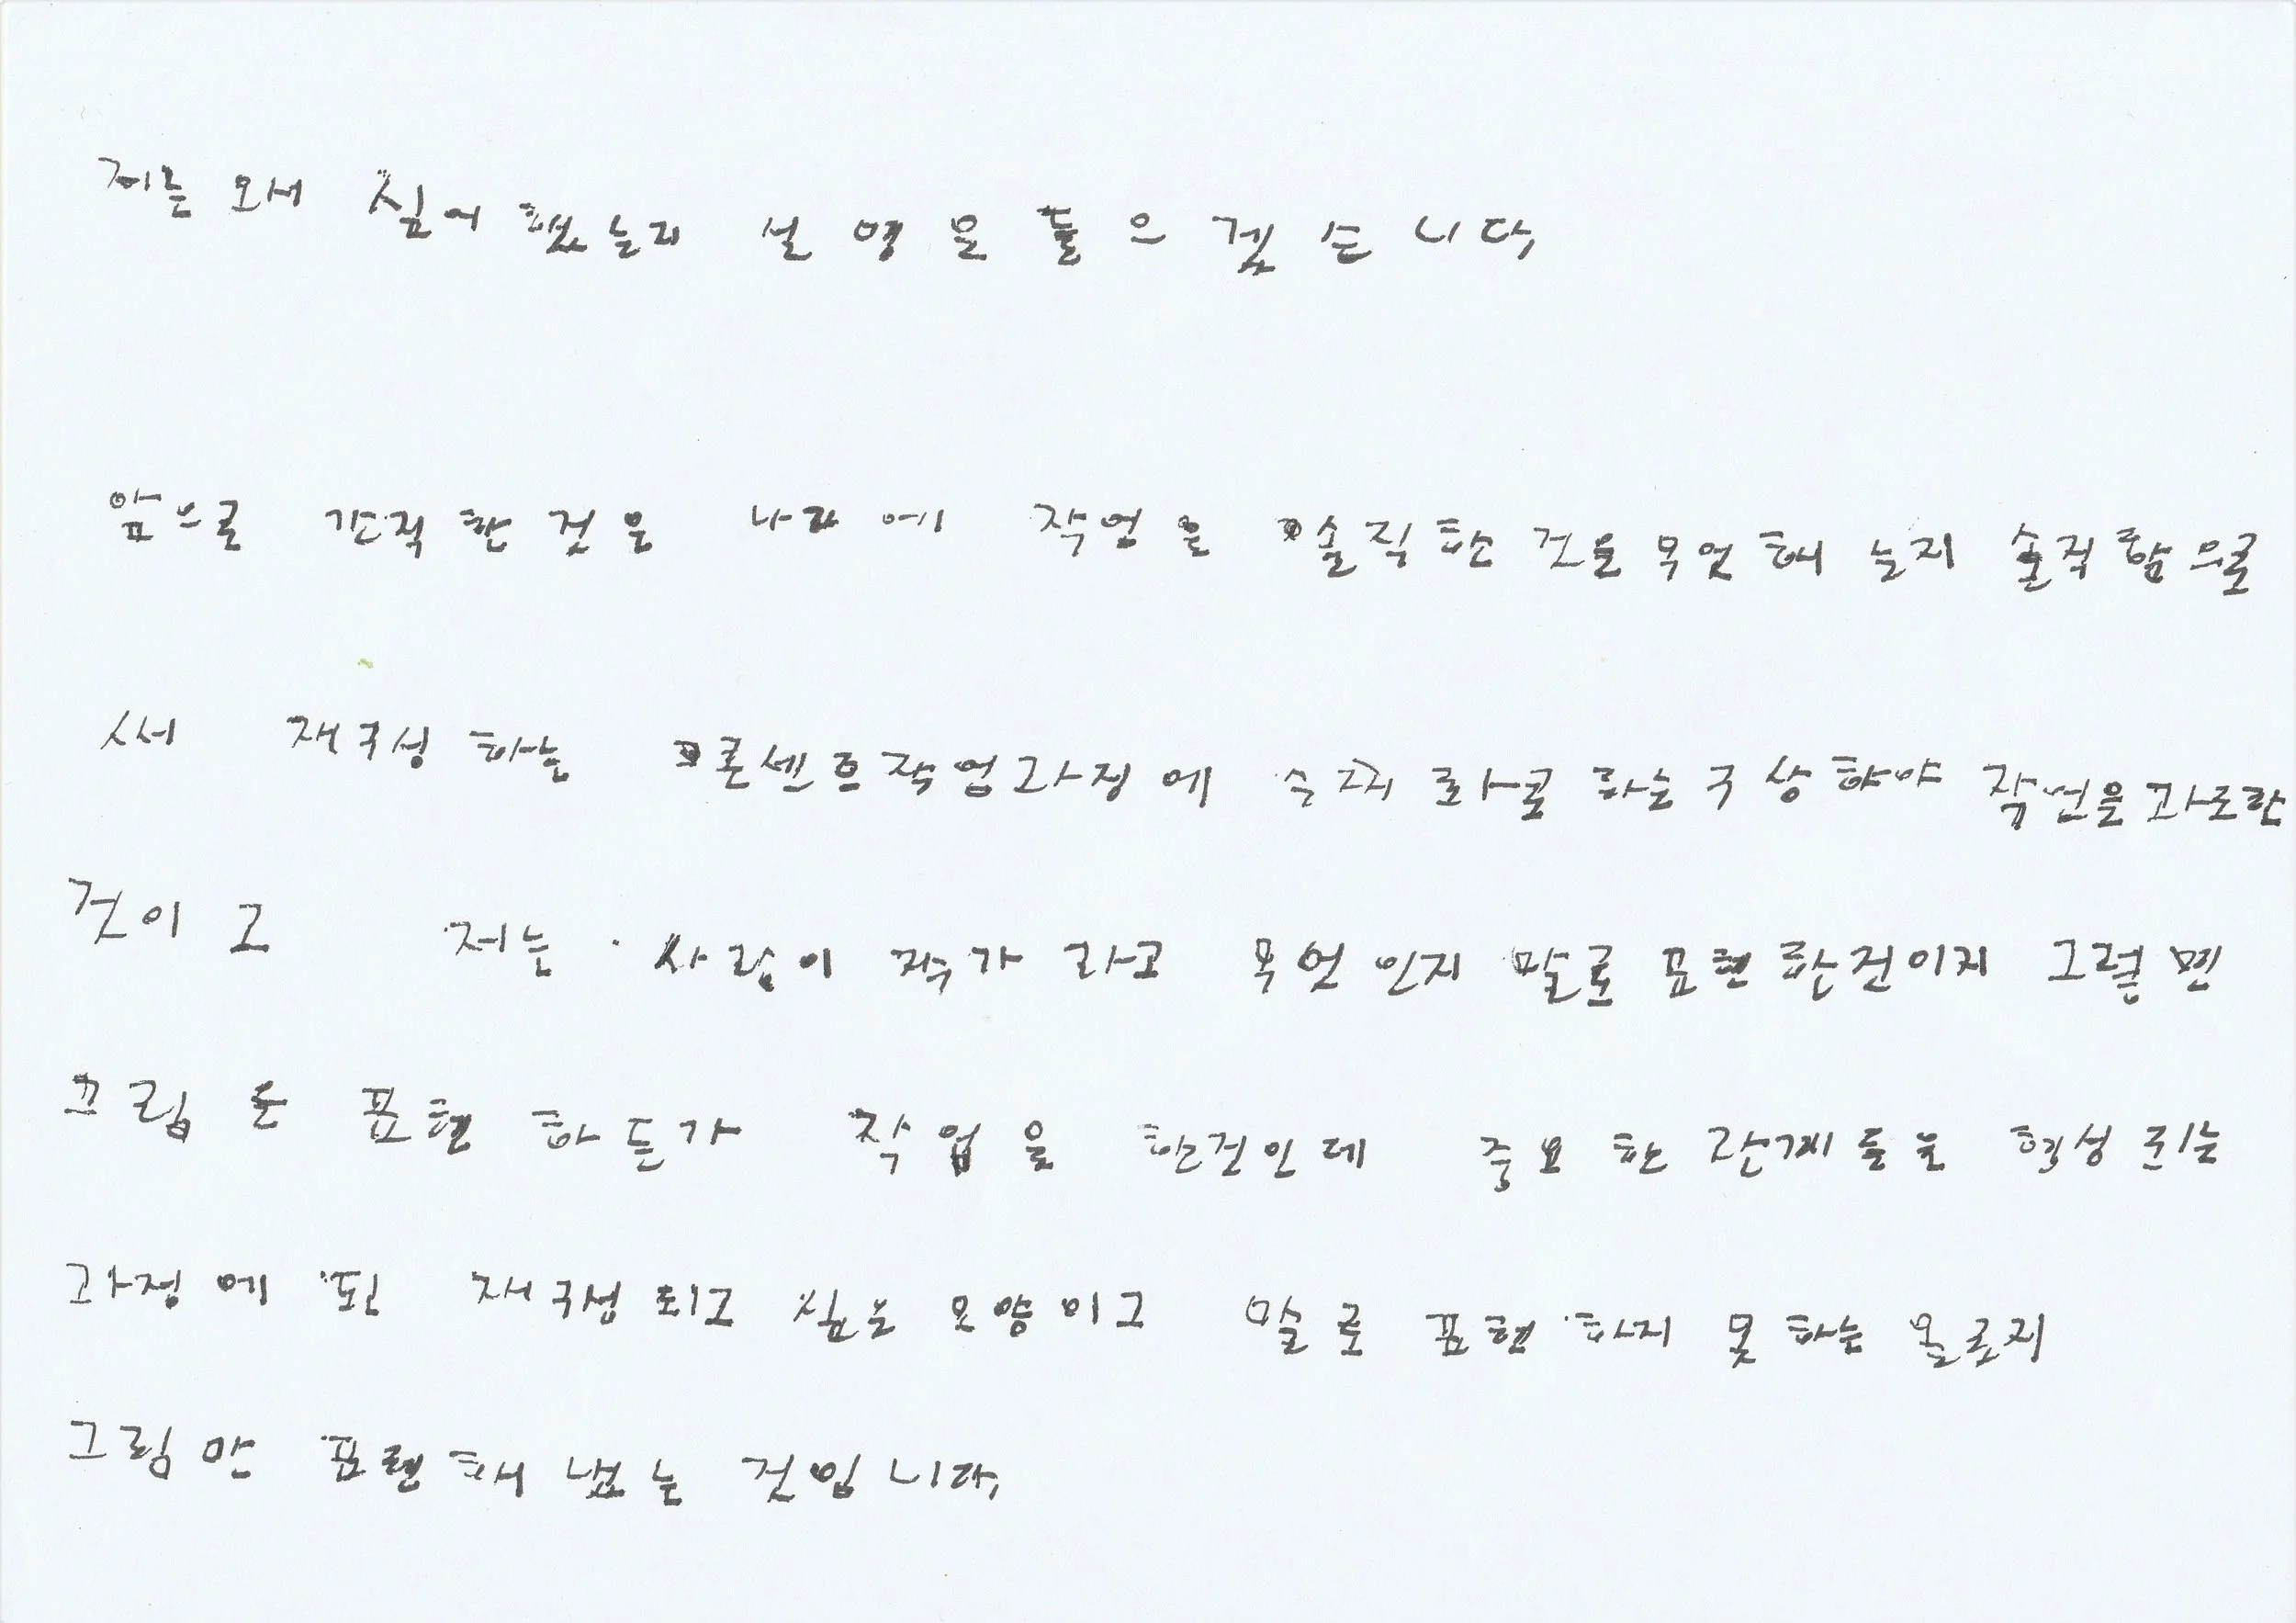 저는 오서 싶어 했는지 설명을 들으겠슨니다,
앞으로 간직한 것을 나라에 작업을 솔직한 것을 무엇해 는지 솔직함으로
서 재구성 하는 콘센트작업과정에 라고 하는 구상하야
것이고 저는 사람이 작가 라고 무엇인지 말로 표현한건이지 그럴멘
그림은 표현 하든가 작업을 한건인데 중요한 관계들을 형성 되는
과정에 된 재구성되고 싶은 모양이고 말로 표현 하지 못하는 올로지
그림만 표현해 냈는 것입니다,